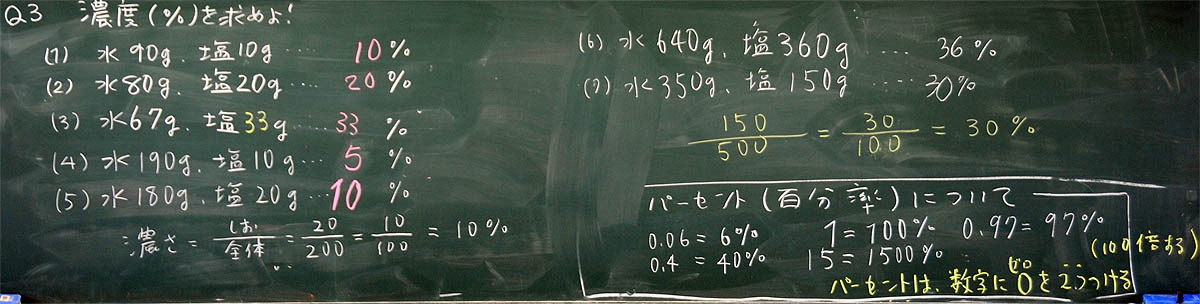 Q3 濃度(%)を求めよ!
(1) 水90g、塩10g…… 10%
(2) 水80g、塩20g…… 20%
(3) 水67g、塩33g…… 33%
(4) 水190g、塩10g… 5%
(5) 水180g、塩20g… 10%
濃さ = しお/全体 = 20/200 = 10/100 = 10%
(6) 水640g、塩360g …… 36%
(7) 水350g、塩150g …… 30%
150/500 = 30/100 = 30%
パーセント(百分率)について
0.06 = 6% 1 = 100% 0.97 = 97%
0.4 = 40% 15 = 1500% (100倍する)
パーセントは、数字に0(ゼロ)を2つつける